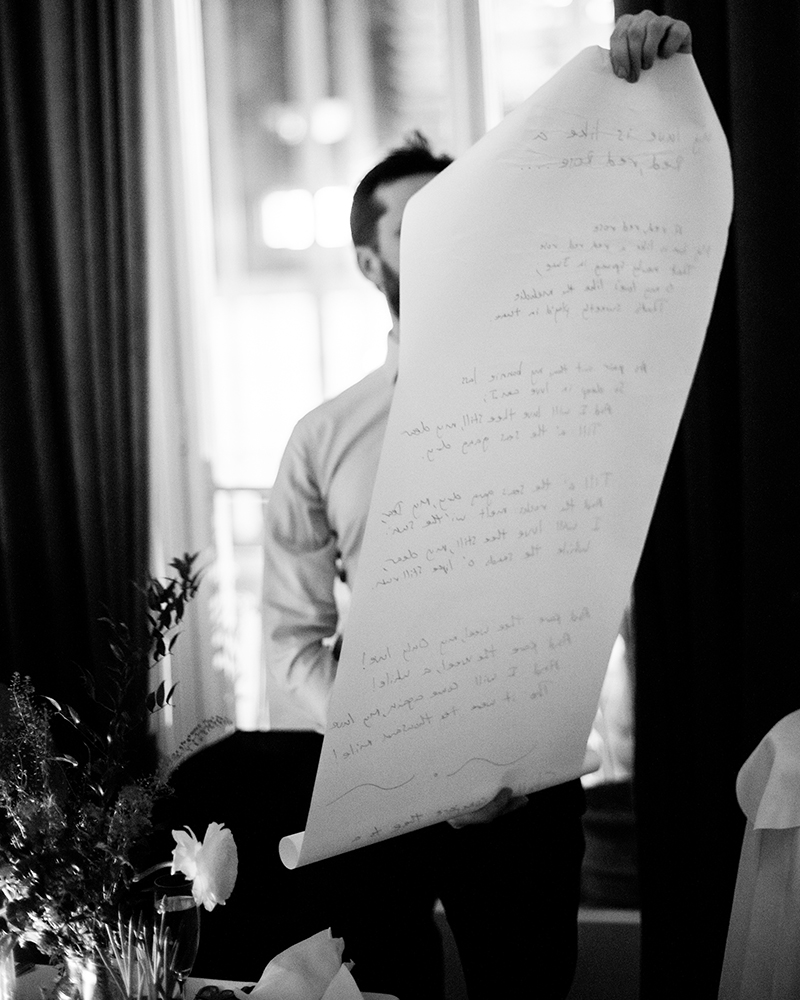 My love is like a
Red, red rose....
A red, red rose
My love is like a red, red rose
That's newly sprung in June,
O my love's like the melodie
That's sweetly play'd in tune
As fair art thou, my bonnie lass
So deep in love am I;
And I will love thee still, my dear
Till a' the seas gang dry.
Till a' the seas gang dry, my Dear,
And the rocks melt wi' the sun:
I will love thee still, my dear,
While the sands o' life still run
And fare thee weel, my only luve!
And fare thee weel, a while!
And I will come again, my luve
Tho' it were ten thousand mile!
thee to a